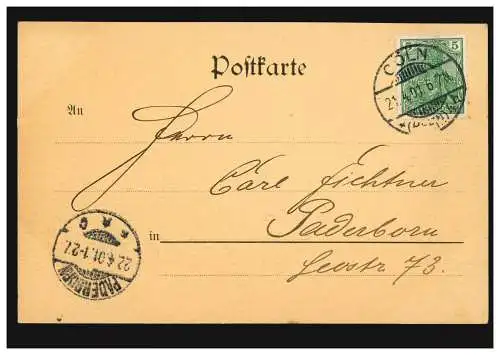 5 5
CÖLN
21.4.01.6-7N.
Postkarte
An
Herrn
Carl Fichtner
in Paderborn
Geostr 73.
22.4.01.1-2V.
PADERBORN